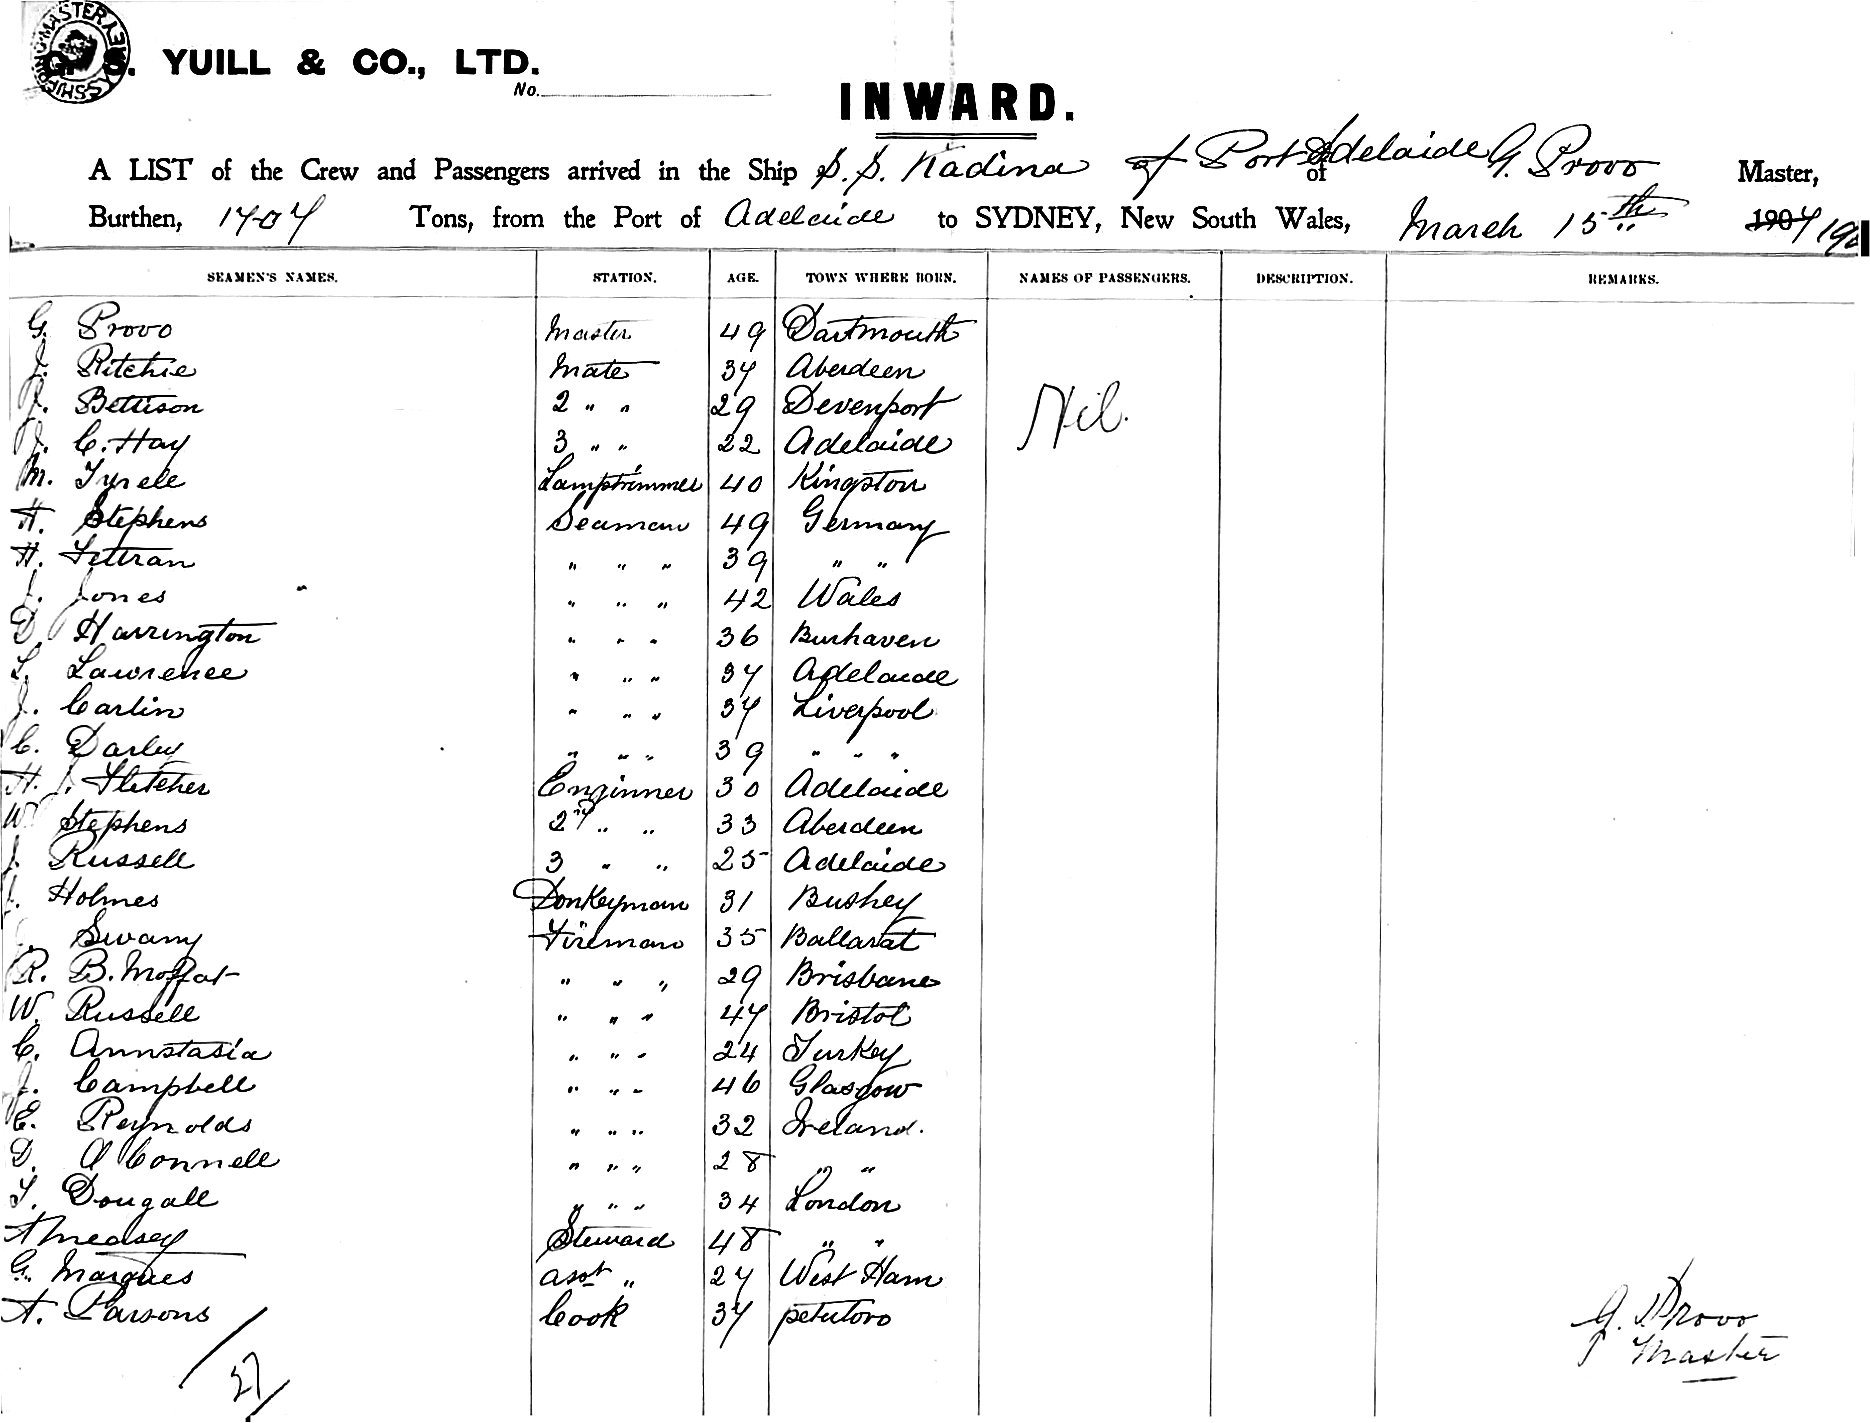 SHIPPING MASTER SYDNEY
G. S. YUILL & CO., LTD.
No.
INWARD.
A LIST of the Crew and Passengers arrived in the Ship S.S. Kadina of Port Adelaide of G. Provo Master,
Burthen, 1707 Tons, from the Port of Adelaide to SYDNEY, New South Wales, March 15th 1907 190
SEAMEN'S NAMES. STATION. AGE. TOWN WHERE BORN. NAMES OF PASSENGERS. DESCRIPTION. REMARKS.
G. Provo Master 49 Dartmouth
J. Ritchie Mate 37 Aberdeen
J. Bettison 2 " " 29 Devenport Nil.
J. C. Hay 3 " " 22 Adelaide
M. Tyrele Lamptrimmer 40 Kingston
H. Stephens Seaman 49 Germany
H. Tettran " " " 39 " "
J. Jones " " " 42 Wales
D. Harrington " " " 36 Burhaven
L. Lawrence " " " 37 Adelaide
J. Carlin " " " 37 Liverpool
C. Darley " " " 39 " " "
H. J. Fletcher Enginner 30 Adelaide
W. Stephens 2nd " " 33 Aberdeen
J. Russell 3 " " 25 Adelaide
J. Holmes Donkeyman 31 Bushey
Swany Fireman 35 Ballarat
R. B. Moffat " " " 29 Brisbane
W. Russell " " " 47 Bristol
C. Annstasia " " " 24 Turkey
J. Campbell " " " 46 Glasgow
E. Reynolds " " " 32 Ireland.
D. O Connell " " " 28 " "
T. Dougall " " " 34 London
A Measey Steward 48 " "
G. Margues asst " 27 West Ham
A. Parsons Cook 37 petutoro
G. Provo
Master
27